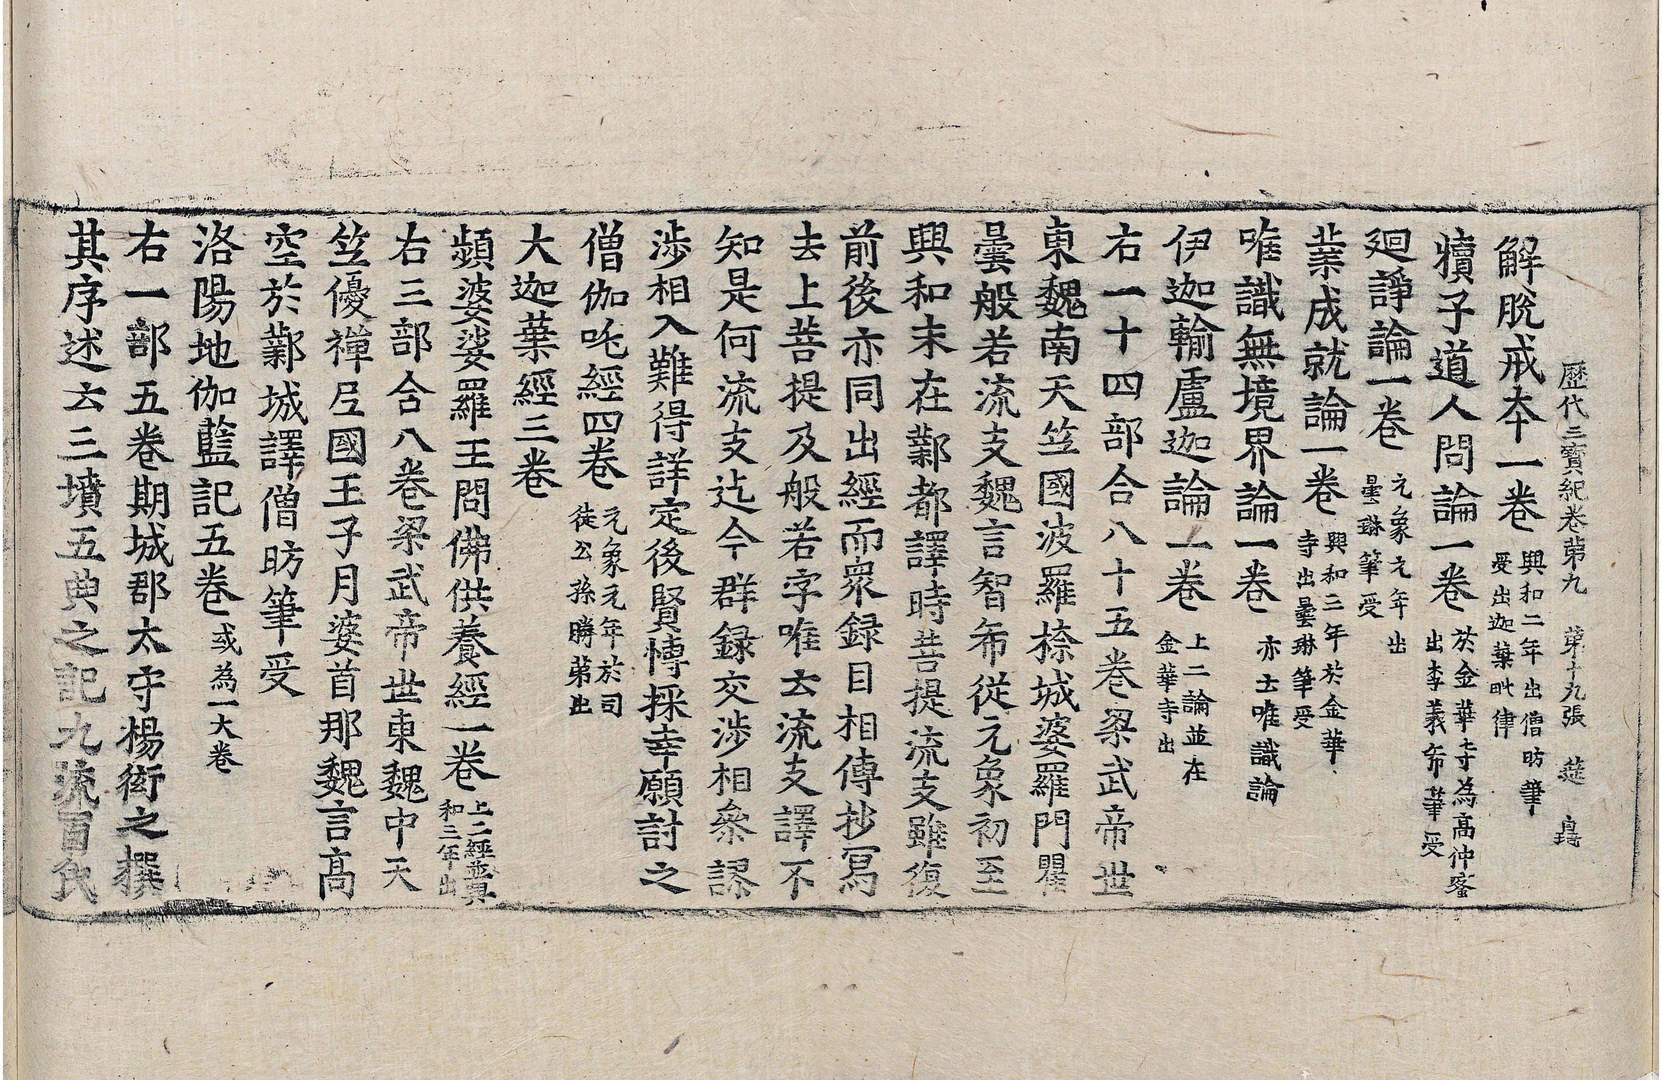 歷代三寶紀卷第九　第十九張　莚
解脫戒夲一卷興和二年出僧昉筆受出迦葉毗律
犢子道人問論一卷於金華寺為高仲密出李義希筆受
廻諍論一卷元象元年出曇琳筆受
業成就論一卷興和三年於金華寺出曇琳筆受
唯識無境界論一卷亦云唯識論
伊迦輸盧迦論一卷上二論並在金華寺出
右一十四部合八十五卷梁武帝世
東魏南天竺國波羅㮈城婆羅門瞿
曇般若流支魏言智希從元象初至
興和末在鄴都譯時菩提流支雖復
前後亦同出經而眾録目相傳抄寫
去上菩提及般若字唯云流支譯不
知是何流支迄今群録交涉相叅謬
涉相入難得詳定後賢慱採幸願討之
僧伽吒經四卷元象元年於司徒公孫勝弟出
大迦葉經三卷
頻婆娑羅王問佛供養經一卷上二經並興和三年出
右三部合八卷梁武帝世東魏中天
竺優禪尼國王子月婆首那魏言高
空於鄴城譯僧昉筆受
洛陽地伽藍記五卷或為一大卷
右一部五卷期城郡太守楊衒之撰
其序述云三墳五典之記九流百氏